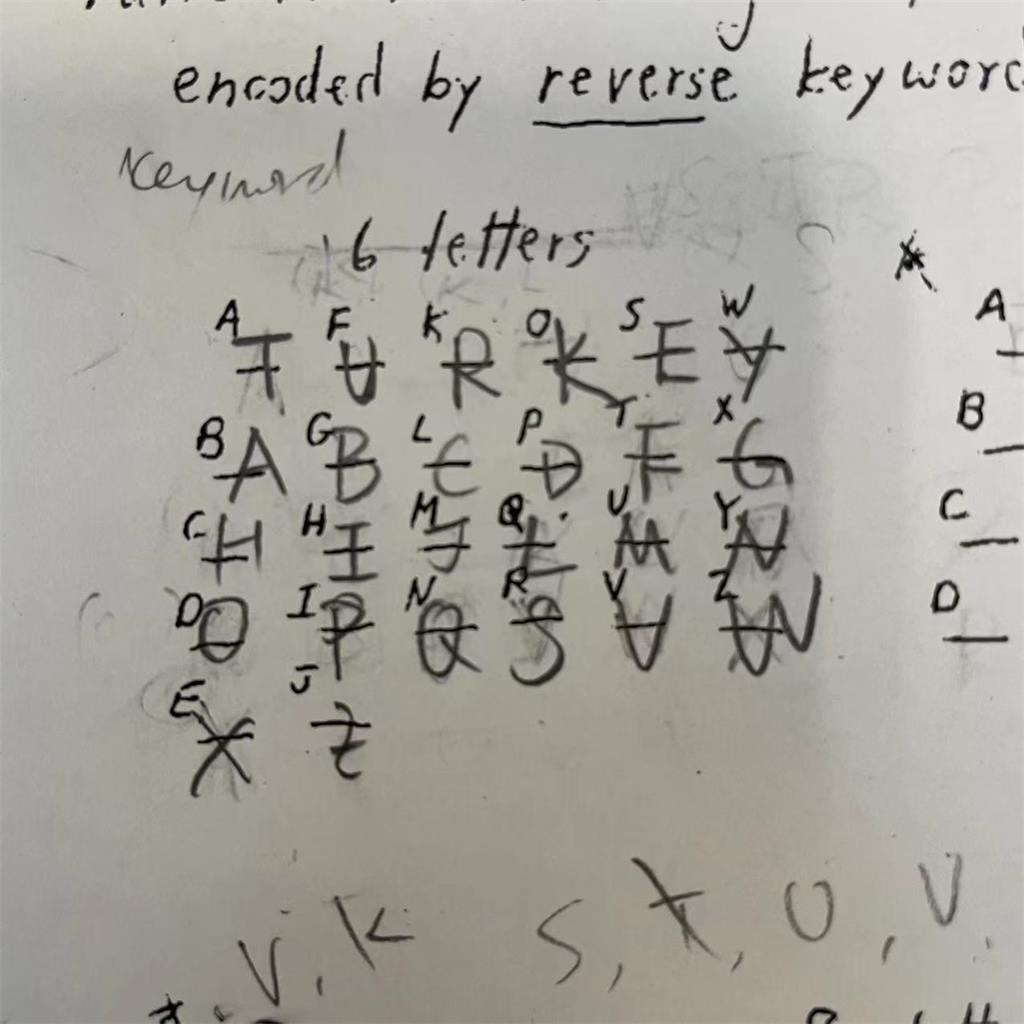 encoded by reverse keyword
Keyword
6 letters
A T F U K R O K S E W Y A
B A G B L C P D T F X G B
C H H I M J Q L U M Y N C
D O I P N Q R S V V Z W D
E X J Z
V, K S, X, U, V